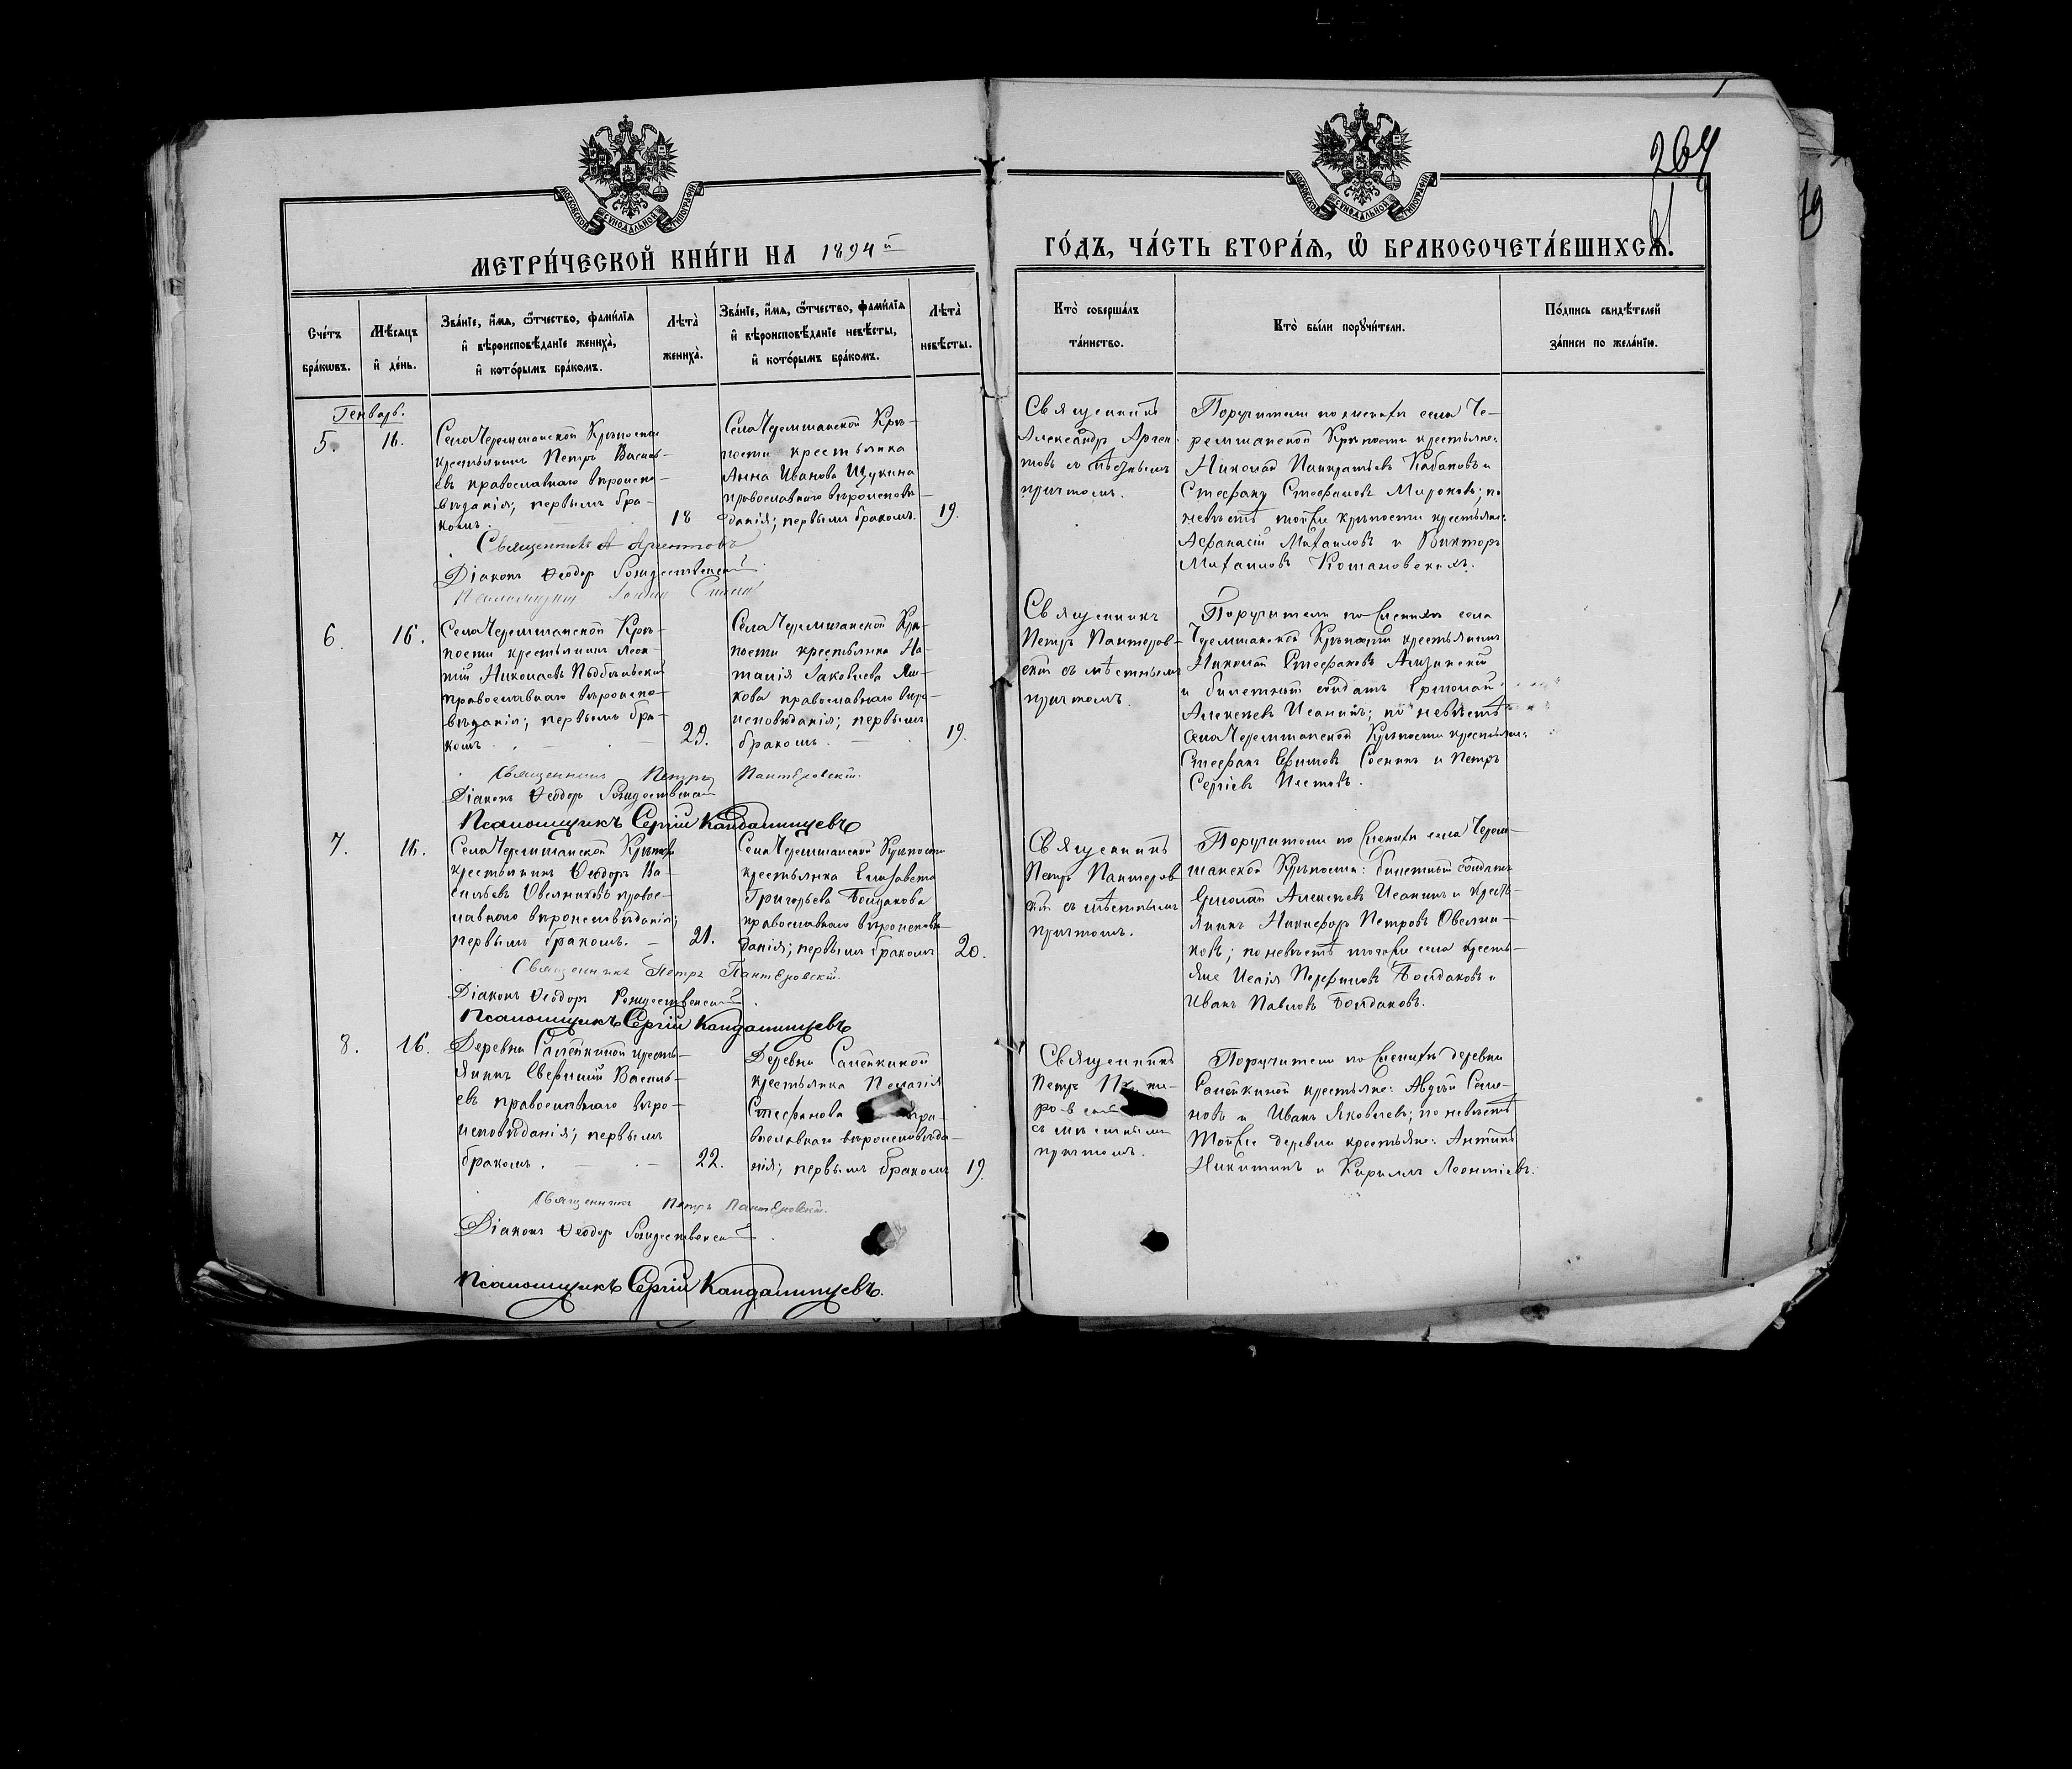 264
79
МОСКОВСКОЙ СѴНОДАЛЬНОЙ ТИПОГРАФІИ
МОСКОВСКОЙ СѴНОДАЛЬНОЙ ТИПОГРАФІИ
МЕТРИ́ЧЕСКОЙ КНИ́ГИ НА 1894й
ГО́ДЪ, ЧА́СТЬ ВТОРА́Ѧ, Ѽ БРАКОСОЧЕТА́ВШИХСѦ.
Сче́тъ
бра́кѡвъ.
Мѣ́сѧцъ
и҆ де́нь.
Зва́нїе, и҆́мѧ, ѻ҆́тчество, фами́лїѧ
и҆ вѣроисповѣ́данїе жениха̀,
и҆ кото́рымъ бра́комъ.
Лѣта̀
жениха̀.
Зва́нїе, и҆́мѧ, ѻ҆́тчество, фами́лїѧ
и҆ вѣроисповѣ́данїе невѣ́сты,
и҆ кото́рымъ бра́комъ.
Лѣта̀
невѣ́сты.
Кто̀ соверша́лъ
та́инство.
Кто̀ бы́ли порꙋчи́тели.
По́дпись свидѣ́телей
за́писи по жела́нїю.
Генварь.
5.
16.
Села Черемшанской Крѣпости
крестьянинъ Петръ Василь-
евъ православнаго вѣроиспо-
вѣданія; первымъ бра-
комъ.
18
Села Черемшанской Крѣ-
пости крестьянка
Анна Иванова Щукина
православнаго вѣроисповѣ-
данія; первымъ бракомъ.
19.
Священникъ
Александръ Арген-
товъ съ мѣстнымъ
причтомъ.
Поручители по женихѣ села Че-
ремшанской Крѣпости крестьяне:
Николай Панкратьевъ Кабановъ и
Стефанъ Стефановъ Мироновъ; по
невѣстѣ той же крѣпости крестьяне:
Афанасій Михаиловъ и Викторъ
Михаиловъ
Священникъ А Аргентовъ
Діаконъ Ѳеодоръ Рождественскій
6.
16.
Села Черемшанской Крѣ-
пости крестьянинъ Леон-
тій Николаевъ Подбѣльскій
православнаго вѣроиспо-
вѣданія; первымъ бра-
комъ.
29.
Села Черемшанской Крѣ-
пости крестьянка На-
талія Іаковлева Яш-
кова православнаго вѣро-
исповѣданія; первымъ
бракомъ.
19.
Священникъ
Петръ Пантеров-
скій съ мѣстнымъ
причтомъ.
Поручители по женихѣ села
Черемшанской Крѣпости крестьянинъ
Николай Стефановъ
и билетный солдатъ Ермолай
Алексѣевъ Исанинъ; по невѣстѣ
села Черемшанской Крѣпости крестьяне:
Стефанъ Ефимовъ и Петръ
Сергіевъ Пестовъ.
Священникъ Петръ Пантеровскій.
Діаконъ Ѳеодоръ Рождественскій
Псаломщикъ Сергій Кандалинцевъ
7.
16.
Села Черемшанской Крѣпости
крестьянинъ Ѳеодоръ Ва-
сильевъ Овсянниковъ правос-
лавнаго вѣроисповѣданія;
первымъ бракомъ.
21.
Села Черемшанской Крѣпости
крестьянка Елизавета
Григорьева Болдакова
православнаго вѣроисповѣ-
данія; первымъ бракомъ
20.
Священникъ
Петръ Пантеров
скій съ мѣстнымъ
причтомъ.
Поручители по женихѣ села Черем-
шанской Крѣпости: билетный солдатъ
Ермолай Алексѣевъ Исанинъ и кресть-
янинъ Никифоръ Петровъ Овсянни-
ковъ; по невѣстѣ того же села кресть-
яне Исаія Перфиловъ Болдаковъ и
Иванъ Павловъ Болдаковъ.
Священникъ Петръ Пантеровскій.
Діаконъ Ѳеодоръ Рождественскій.
Псаломщикъ Сергій Кандалинцевъ
8.
16.
Деревни Салейкиной кресть-
янинъ Евфимій Василь-
евъ православнаго вѣро-
исповѣданія; первымъ
бракомъ.
22.
Деревни Салейкиной
крестьянка Пелагія
Стефанова пра-
вославнаго вѣроисповѣда-
нія; первымъ бракомъ
19.
Священникъ
Петръ
съ мѣстнымъ
причтомъ.
Поручители по женихѣ деревни
Салейкиной крестьяне: Авдѣй Семе-
новъ и Иванъ Яковлевъ; по невѣстѣ
той же деревни крестьяне: Антипъ
Никитинъ и Кириллъ Леонтіевъ.
Священникъ Петръ Пантеровскій.
Діаконъ Ѳеодоръ Рождественскій.
Псаломщикъ Сергій Кандалинцевъ.